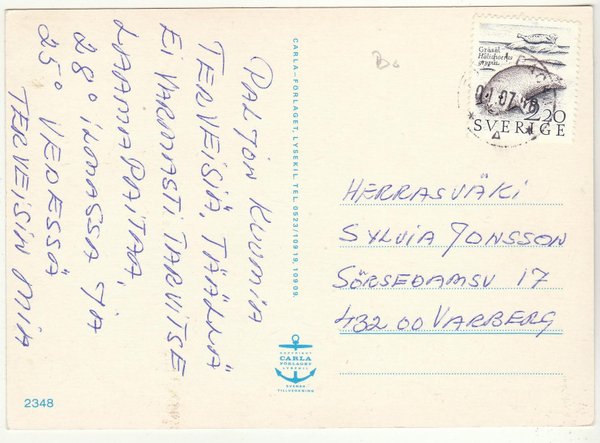 PALJON KUUMIA
TERVEISIÄ, TÄÄLLÄ
EI VARMASTI TARVITSE
LÄÄMÄPAITAA,
28° ILMASSA JA
25° VEDESSÄ
TERVEISIN MIA
CARLA-FÖRLAGET, LYSEKIL. TEL. 0523/109 19, 109 09.
Gråsäl
Halichoerus
grypus
2.20
SVERIGE
HERRASVÄKI
SYLVIA JONSSON
SÖRSEDAMSV 17
432 00 VARBERG
COPYRIGHT
CARLA
FÖRLAGET
LYSEKIL
SVENSK
TILLVERKNING
2348